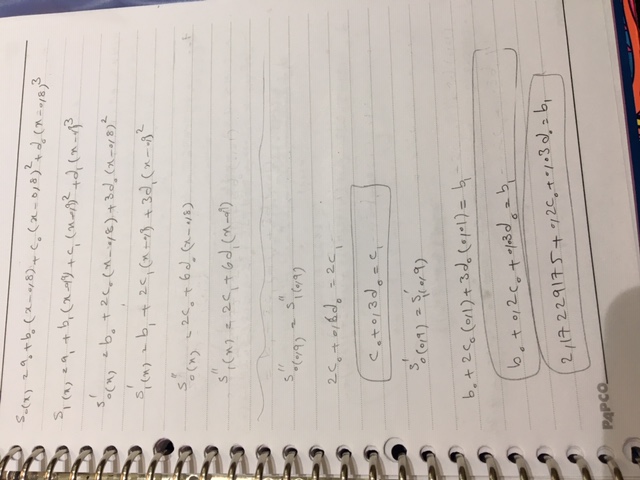 S₀(x) = a₀ + b₀(x-0,8) + c₀(x-0,8)² + d₀(x-0,8)³
S₁(x) = a₁ + b₁(x-0,9) + c₁(x-0,9)² + d₁(x-0,9)³
S'₀(x) = b₀ + 2c₀(x-0,8) + 3d₀(x-0,8)²
S'₁(x) = b₁ + 2c₁(x-0,9) + 3d₁(x-0,9)²
S''₀(x) = 2c₀ + 6d₀(x-0,8)
S''₁(x) = 2c₁ + 6d₁(x-0,9)
S''₀(0,9) = S''₁(0,9)
2c₀ + 0,6d₀ = 2c₁
c₀ + 0,3d₀ = c₁
S'₀(0,9) = S'₁(0,9)
b₀ + 2c₀(0,1) + 3d₀(0,01) = b₁
b₀ + 0,2c₀ + 0,03d₀ = b₁
2,17229175 + 0,2c₀ + 0,03d₀ = b₁
PAPCO